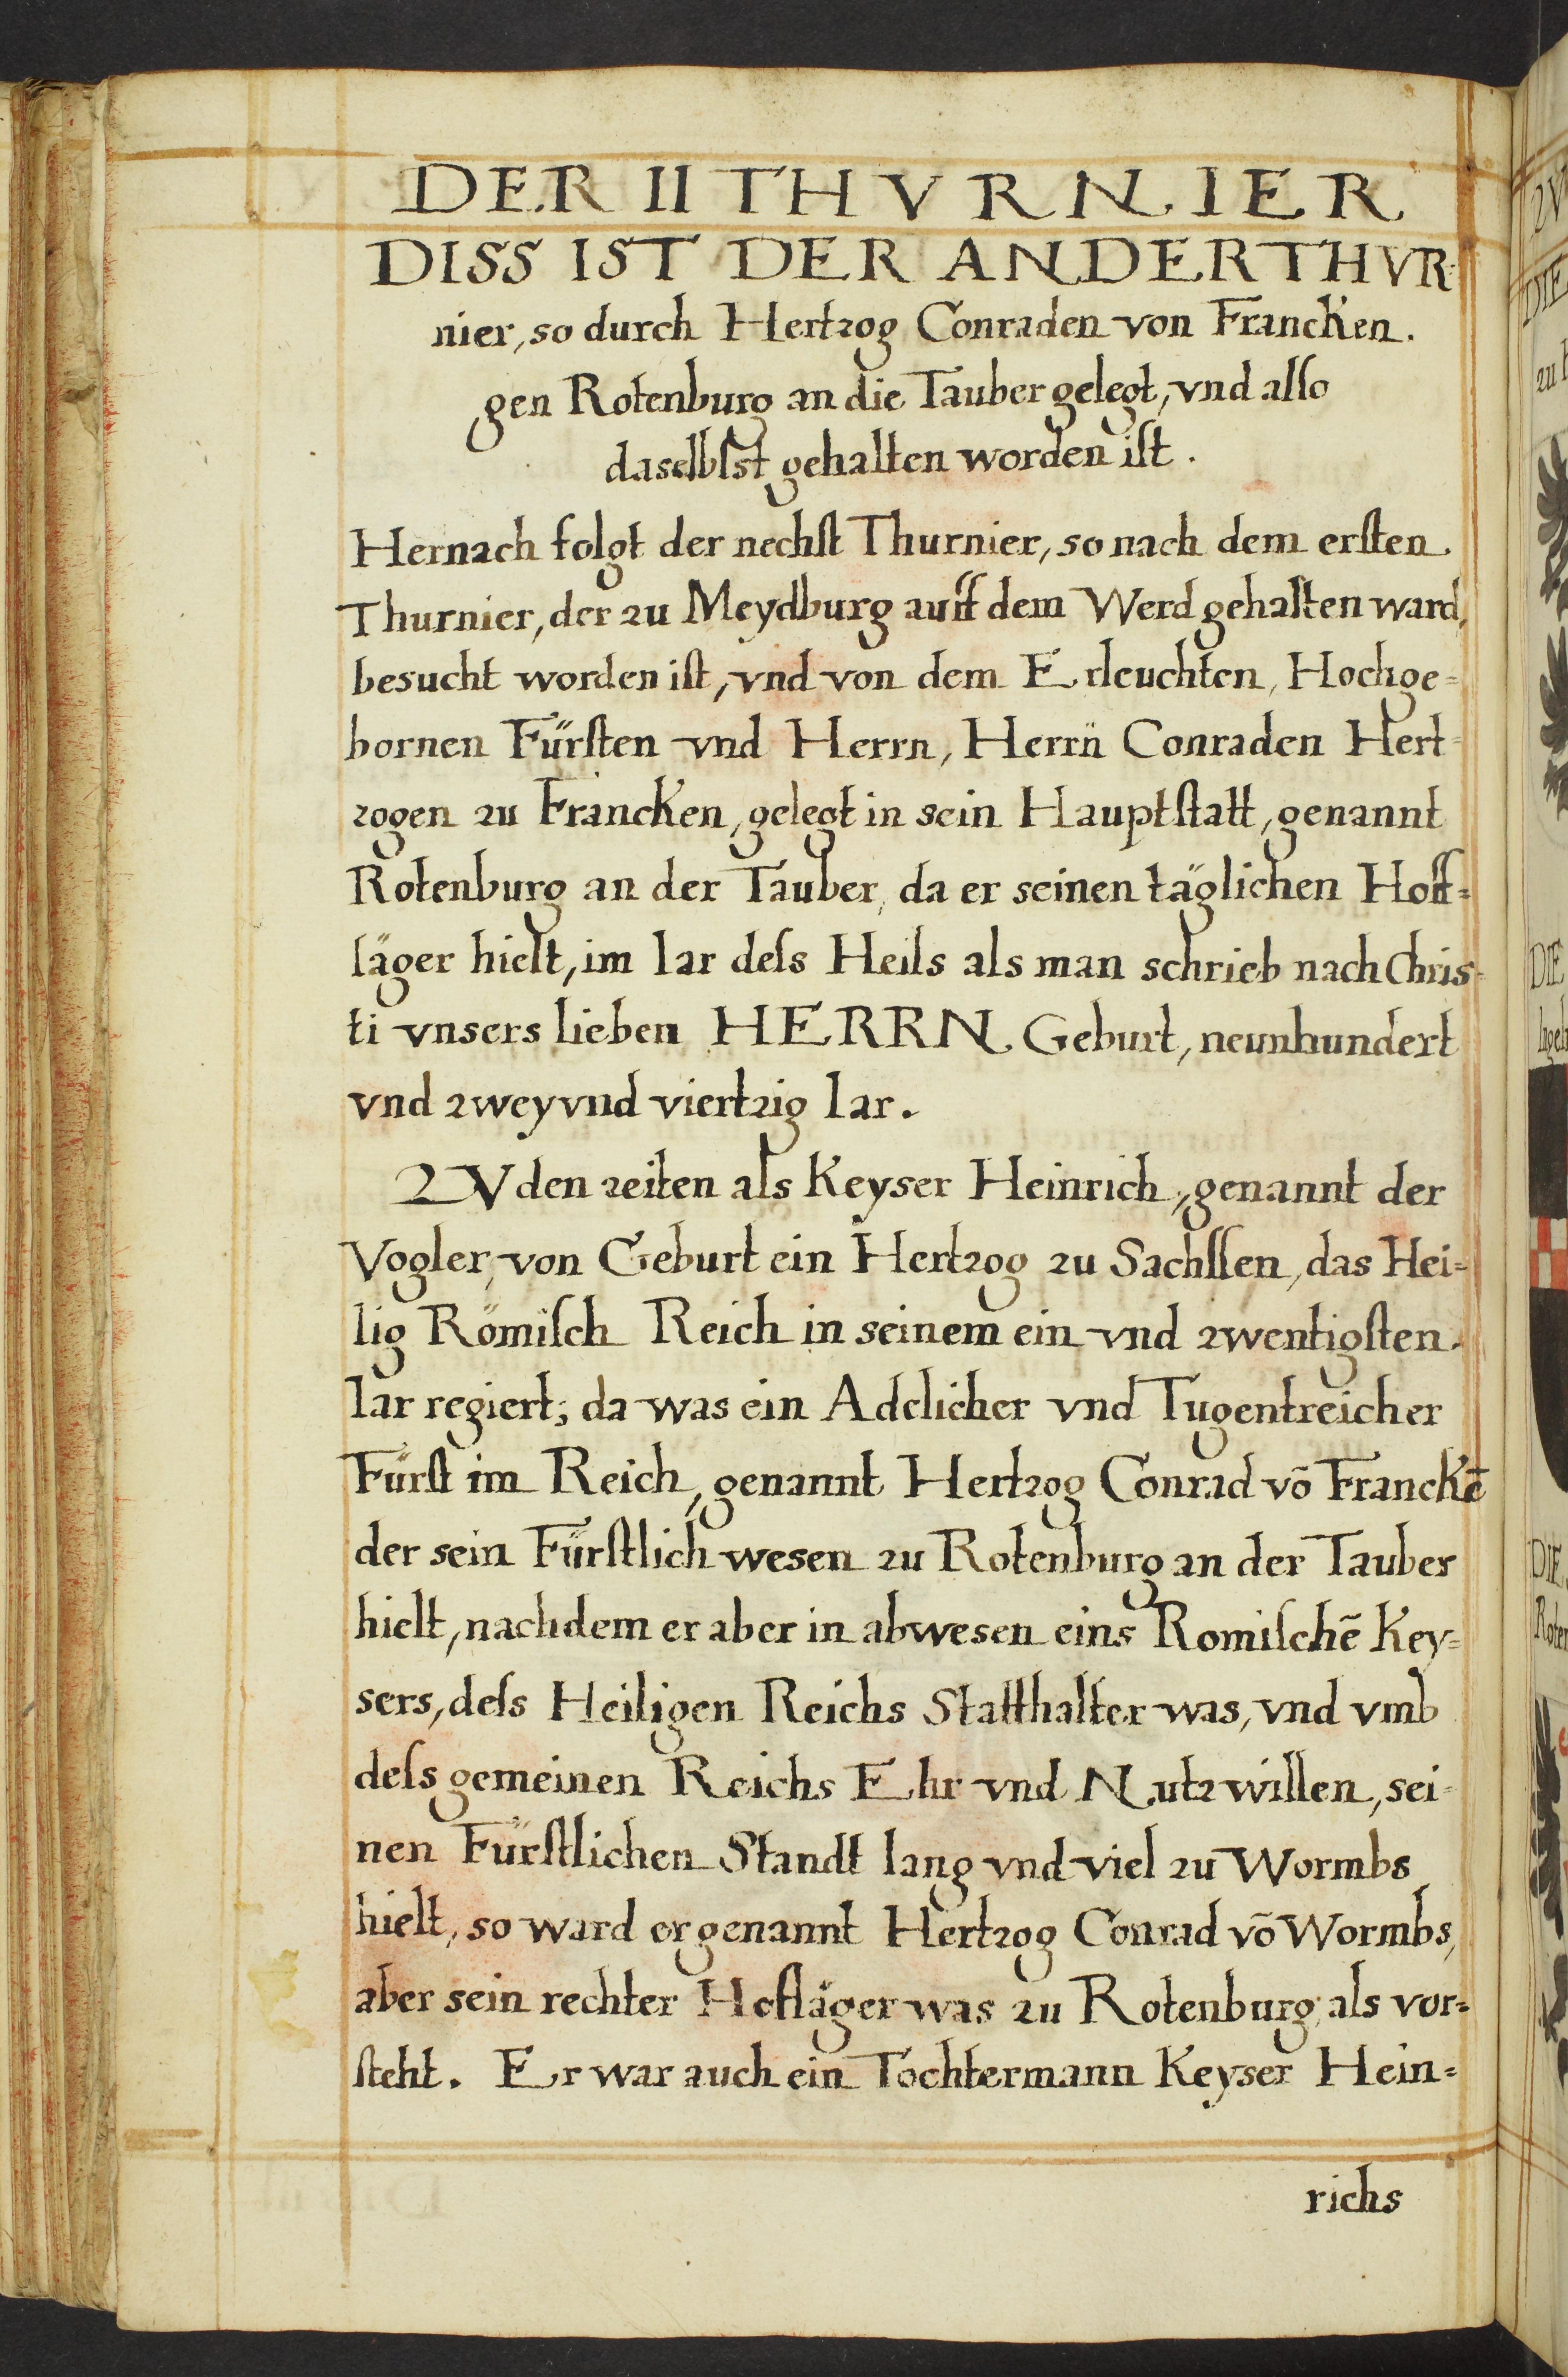 DER II THVRNIER
DISS IST DER ANDER THVR-
nier, so durch Hertzog Conraden von Francken.
gen Rotenburg an die Tauber gelegt, vnd alſo
daselbſst gehalten worden iſt.
Hernach folgt der nechſt Thurnier, so nach dem erſten
Thurnier, der zu Meydburg auff dem Werd gehalten ward,
besucht worden iſt, vnd von dem Erleuchten, Hochge=
bornen Fürſten vnd Herrn, Herrn Conraden Hert=
zogen zu Francken, gelegt in sein Hauptſtatt, genannt
Rotenburg an der Tauber, da er seinen täglichen Hoff=
läger hielt, im Iar deſs Heils als man schrieb nach Chris=
ti vnsers lieben HERRN Geburt, neunhundert
vnd zwey vnd viertzig Iar.
ZV den zeiten als Keyser Heinrich, genannt der
Vogler, von Geburt ein Hertzog zu Sachſſen, das Hei=
lig Römiſch Reich in seinem ein vnd zwentigſten
Iar regiert, da was ein Adelicher vnd Tugentreicher
Fürſt im Reich, genannt Hertzog Conrad võ Franckẽ
der sein Fürſtlich wesen zu Rotenburg an der Tauber
hielt, nachdem er aber in abwesen eins Romiſchẽ Key=
sers, deſs Heiligen Reichs Statthalter was, vnd vmb
deſs gemeinen Reichs Ehr vnd Nutz willen, sei=
nen Fürſtlichen Standt lang vnd viel zu Wormbs
hielt, so ward er genannt Hertzog Conrad võ Wormbs,
aber sein rechter Hofläger was zu Rotenburg, als vor=
ſteht. Er war auch ein Tochtermann Keyser Hein=
richs